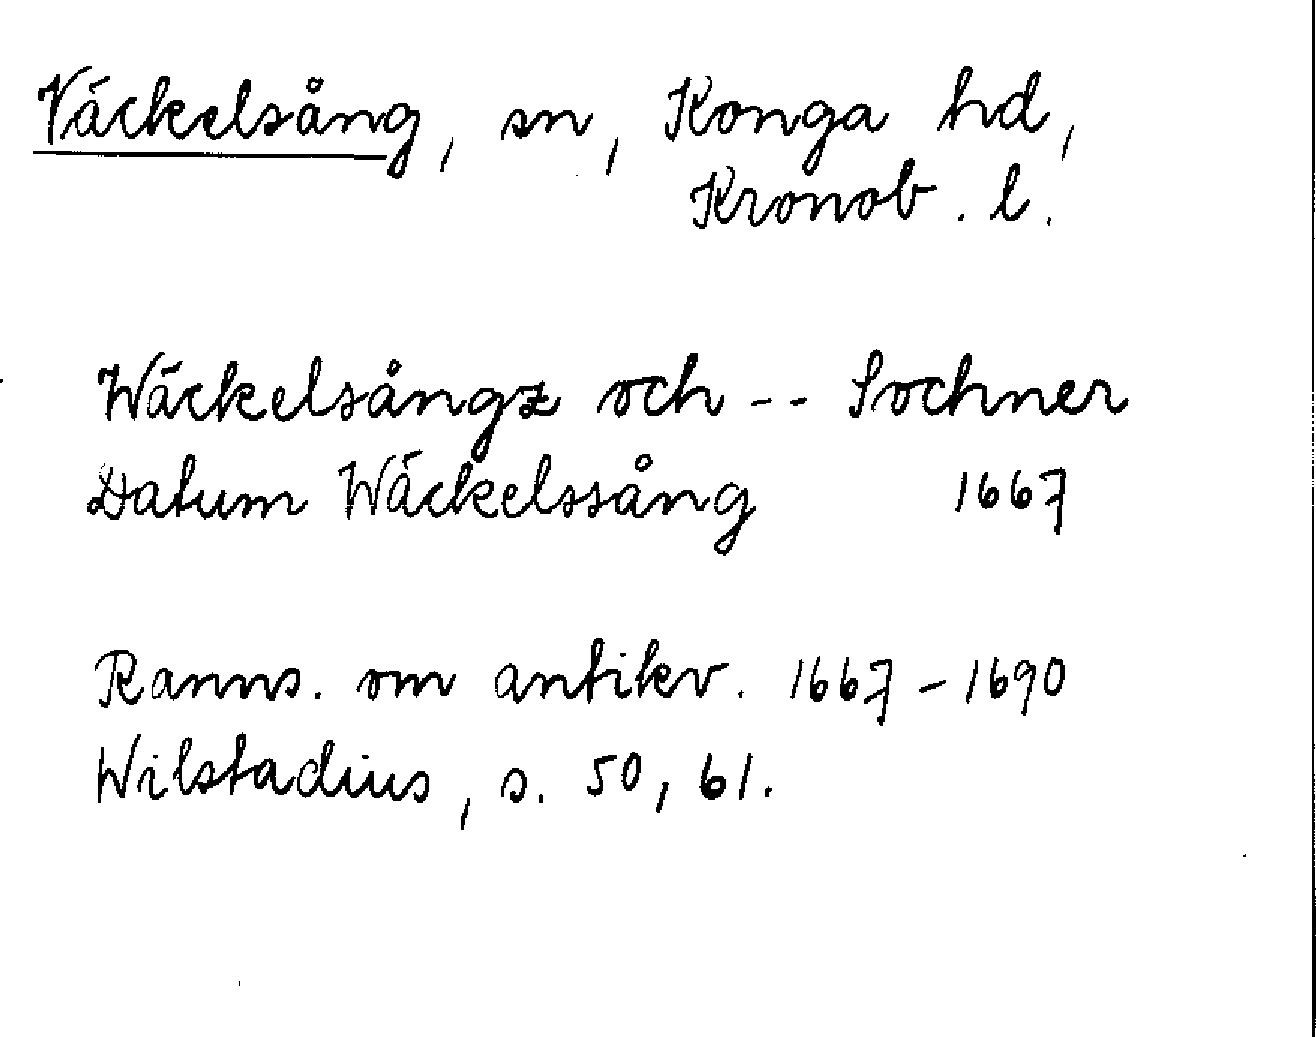 Väckelsång, sn, Konga hd,
Kronob. l.
Wäckelsångz och -- Sochner
Datum Wäckelssång 1667
Ranns. om antikv. 1667-1690
Wilstadius, s. 50, 61.